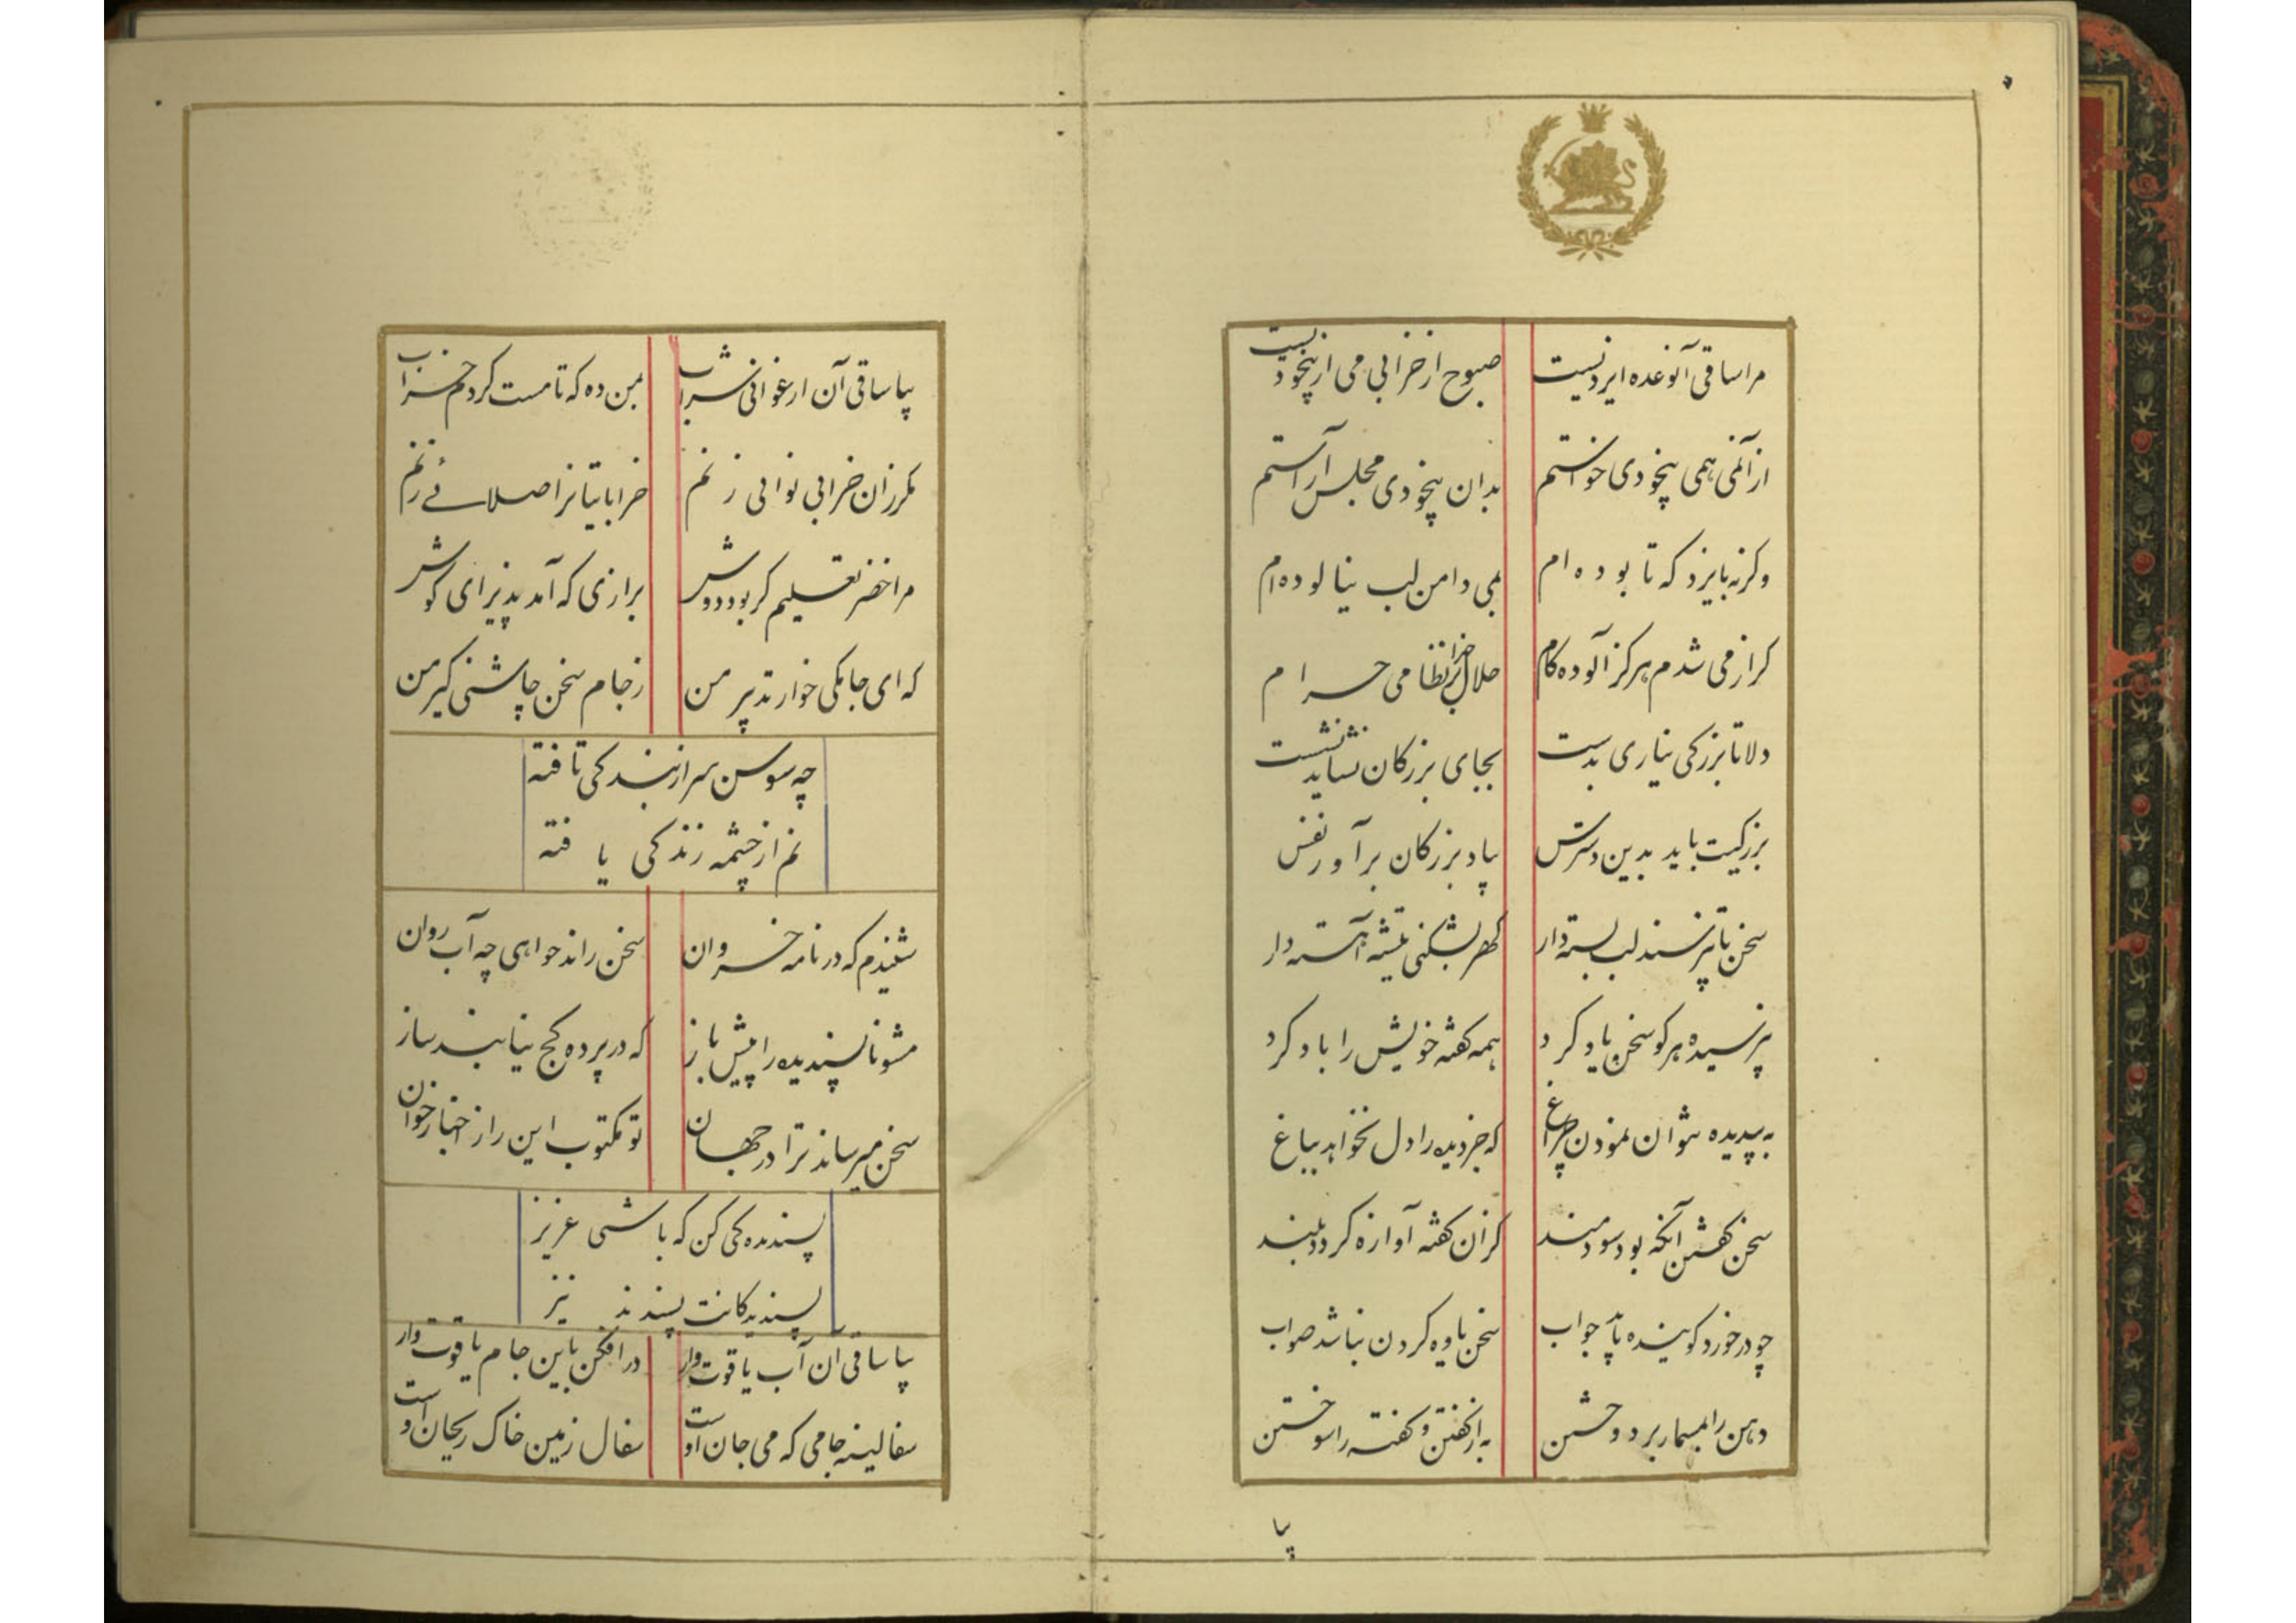 مرا ساقی آنوعده ایزدیست
صبوح از خرابی می از بیخودیست
از آنمی همی بیخودی خواستم
بدان بیخودی مجلس آراستم
وکرنه بایزد که تا بوده ام
بمی دامن لب نیالوده ام
کر از می شدم هرکز آلوده کام
حلال خدا بر نظامی حرام
دلا تا بزرکی نیاری بدست
بجای بزرکان نشاید نشست
بزرکیت باید بدین دسترس
بیاد بزرکان برآور نفس
سخن تا نپرسند لب بسته دار
کهر نشکنی تیشه آهسته دار
نپرسیده هرکو سخن یاد کرد
همه کفته خویش را باد کرد
به بیدیده نتوان نمودن چراغ
که جز دیده را دل نخواهد بباغ
سخن کفتن آنکه بود سودمند
کزان کفته آوازه کردد بلند
چو در خورد کوینده ناید جواب
سخن یاوه کردن نباشد صواب
دهن را بمسمار بر دوختن
به از کفتن و کفته را سوختن
بیا
بیا ساقی آن ارغوانی شراب
بمن ده که تا مست کردم خراب
مکر زان خرابی نوائی زنم
خراباتیانرا صلائے زنم
مرا خضر تعلیم کر بود دوش
برازی که آمد پذیرای کوش
که ای جامکی خوار تدبیر من
ز جام سخن چاشنی کیر من
چه سوسن سر از بندکی تافته
نم از چشمه زندکی یافته
شنیدم که در نامه خسروان
سخن راند خواهی چه آب روان
مشو ناپسندیده را پیش باز
که در پرده کج نیابند ساز
سخن میرساند ترا در جهان
تو مکتوب این راز اخبار خوان
پسنددکی کن که باشی عزیز
پسندیدکانت پسندند نیز
بیا ساقی ان آب یاقوت وار
در افکن باین جام یاقوت وار
سفالینه جامی که می جان اوست
سفال زمین خاک ریحان اوست